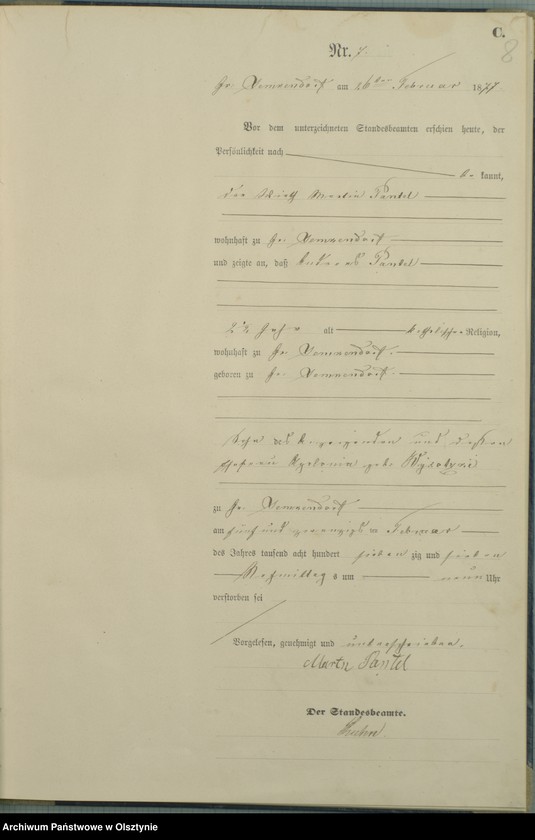 C.
8
Nr. 7.
Gr. am 26ten Februar 1877
Vor dem unterzeichneten Standesbeamten erschien heute, der
Persönlichkeit nach
be kannt,
der Wirth Martin Pantel
wohnhaft zu Gr.
und zeigte an, daß Andreas Pantel
2½ Jahr alt katholischer Religion,
wohnhaft zu Gr.
geboren zu Gr.
Sohn des Anzeigenden und dessen
Ehefrau Apolonia geb.
zu Gr.
am fünf und zwanzigs ten Februar
des Jahres tausend acht hundert sieben zig und sieben
Nachmittag s um neun Uhr
verstorben sei
Vorgelesen, genehmigt und unterschrieben.
Martin Pantel
Der Standesbeamte.
Archiwum Państwowe w Olsztynie